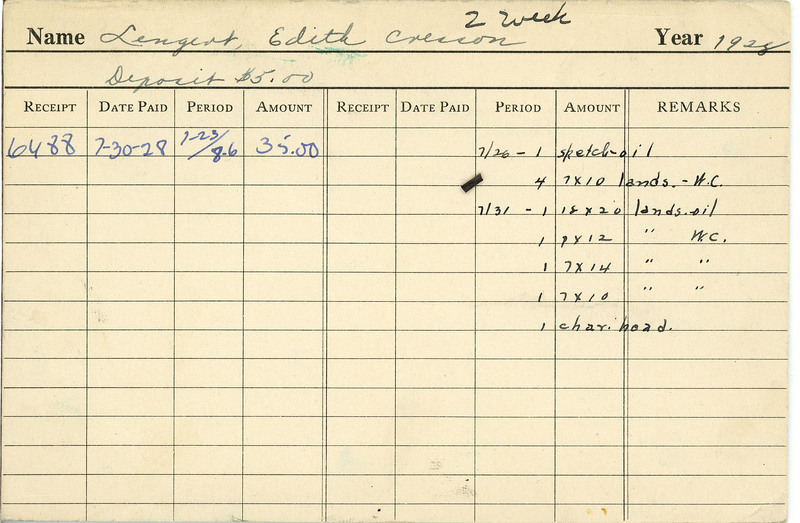 2 week
Name Lengert, Edith Cresson Year 1928
Deposit $5.00
RECEIPT DATE PAID PERIOD AMOUNT RECEIPT DATE PAID PERIOD AMOUNT REMARKS
6488 7-30-28 7-23/8-6 35.00 7/26 - 1 sketch-oil
4 7x10 lands.-W.C.
7/31 - 1 18x20 lands.oil
1 9x12 " W.C.
1 7x14 " "
1 7x10 " "
1 char. head.